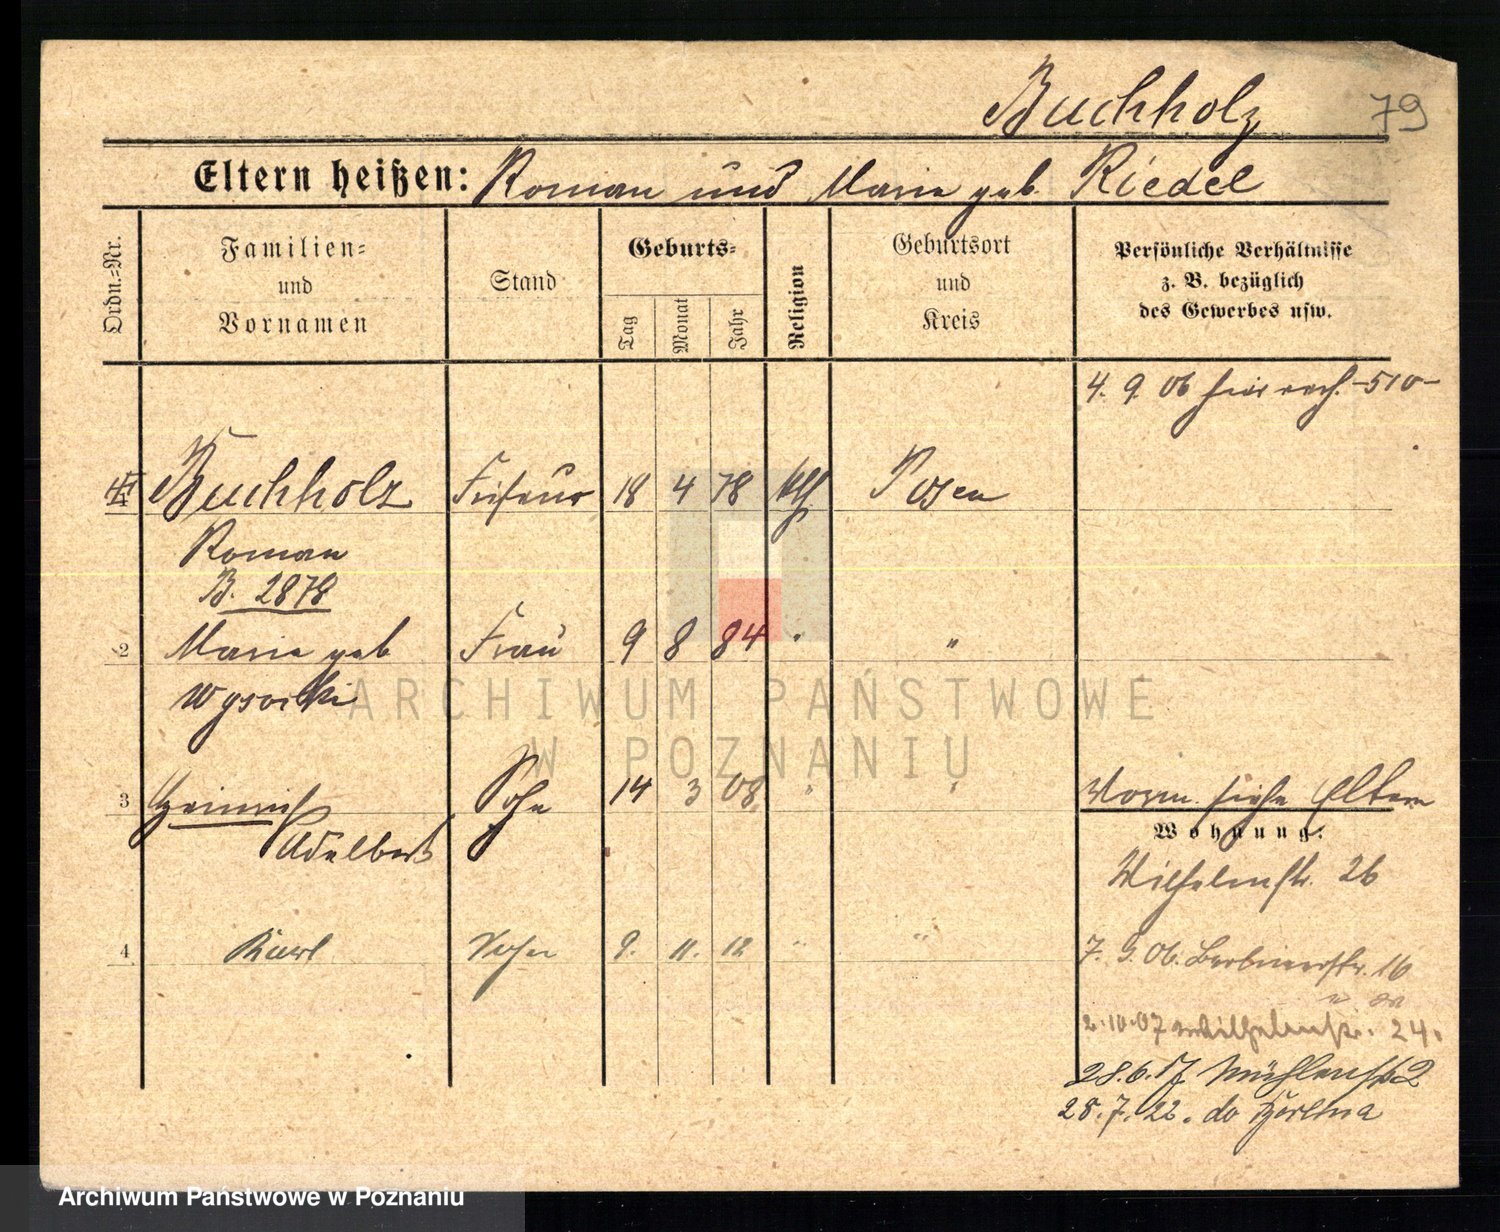 Buchholz 79
Eltern heißen: Roman und Marie geb. Riedel
Ordn.=Nr.
Familien=
und
Vornamen
Stand
Geburts=
Tag Monat Jahr
Religion
Geburtsort
und
Kreis
Persönliche Verhältnisse
z. B. bezüglich
des Gewerbes usw.
4. 9. 06
Buchholz Friseur 18 4 78 kth Posen
Roman
B. 2878
2 Marie geb Frau 9 8 84 " "
Wysocki
3 Heinrich Sohn 14 3 08 " " Vorm siehe Eltern
Adelbert
Wohnung:
Wilhelmstr. 26
4 Karl Sohn 9. 11. 12 " " 7. 9. 06. Berlinerstr. 16
2.10.07 Wilhelmstr. 24.
28.6.17 Mühlenstr 2
28.7.22. do
ARCHIWUM PAŃSTWOWE
W POZNANIU
Archiwum Państwowe w Poznaniu